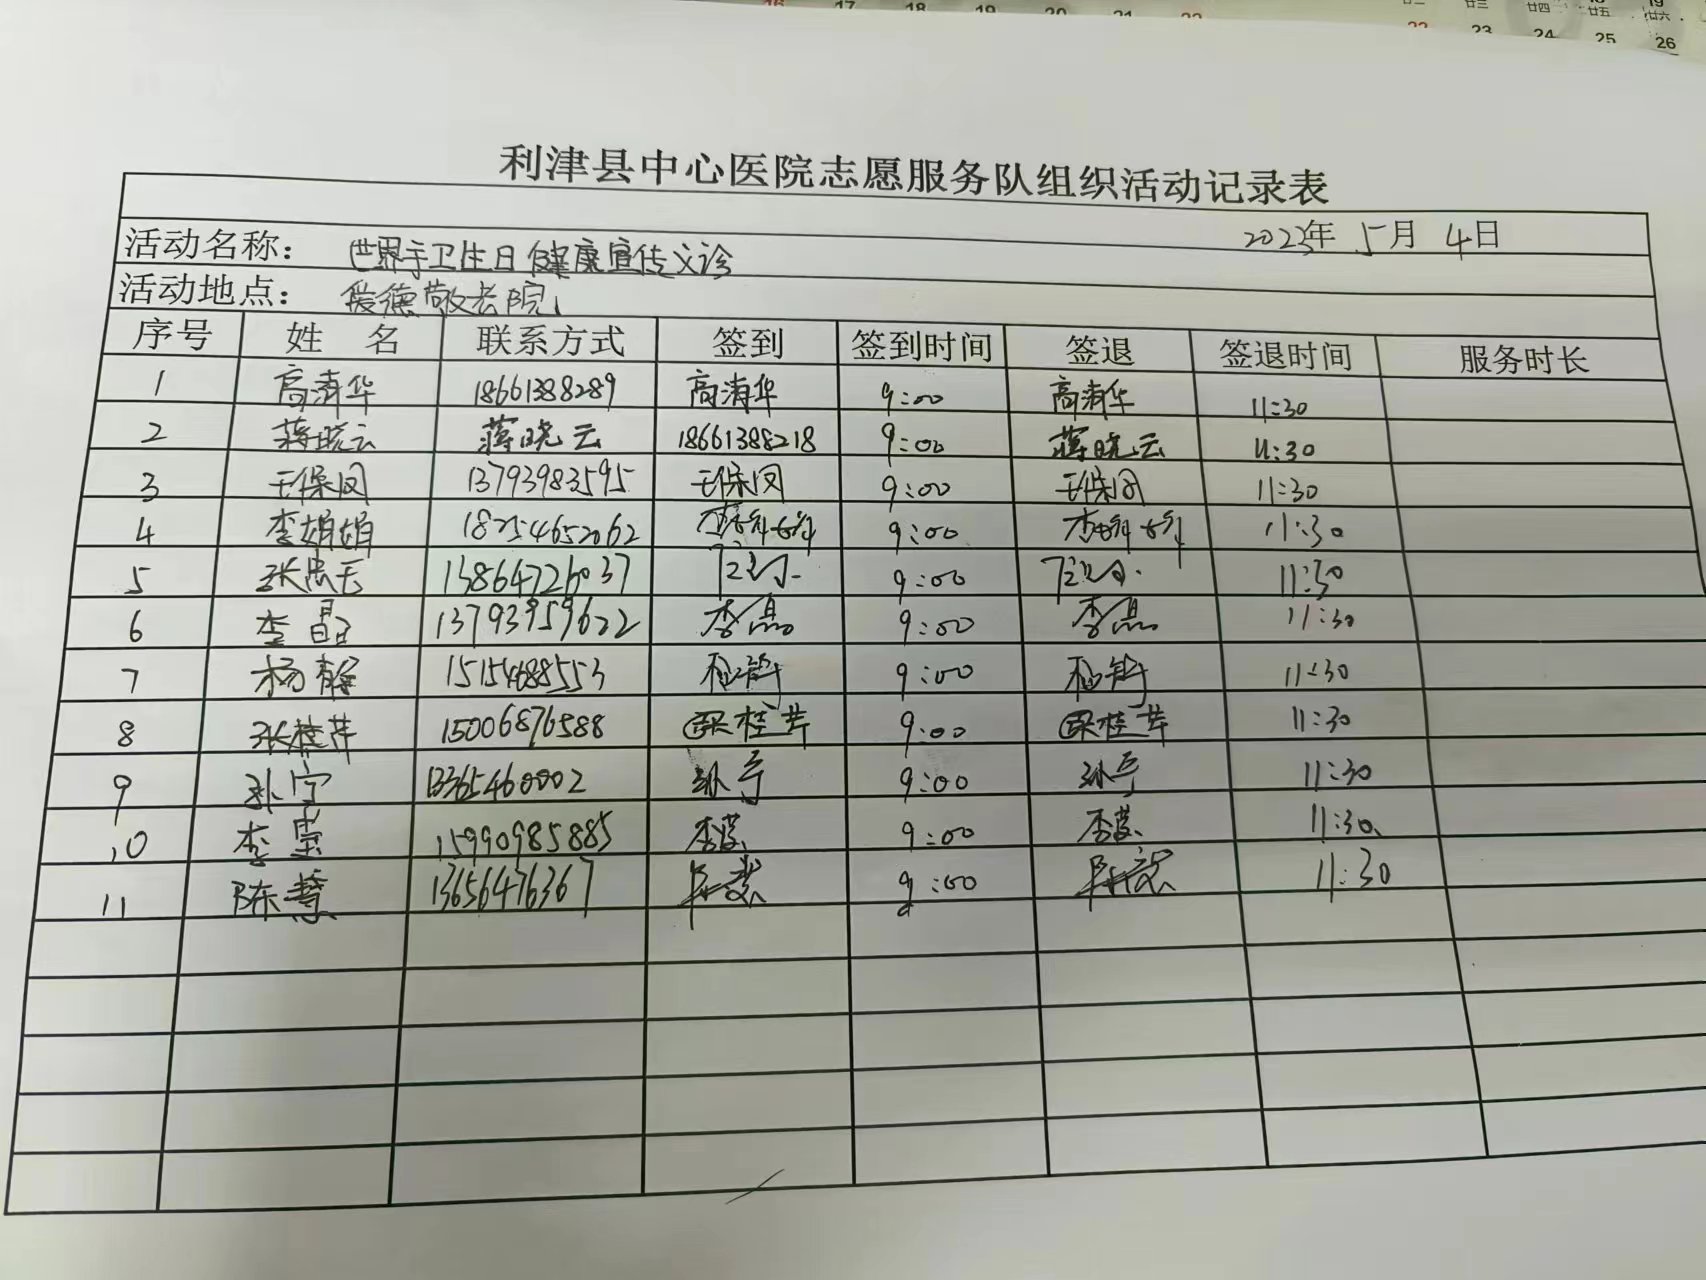 16 17 18 19 20 21 22
廿三 廿四 廿五 廿六
22 23 24 25 26
利津县中心医院志愿服务队组织活动记录表
2023年 5月 4日
活动名称： 世界手卫生日健康宣传义诊
活动地点： 爱德敬老院
序号 姓 名 联系方式 签到 签到时间 签退 签退时间 服务时长
1 高清华 18661388289 高清华 9:00 高清华 11:30
2 蒋晓云 蒋晓云 18661388218 9:00 蒋晓云 11:30
3 王保凤 13793983595 王保凤 9:00 王保凤 11:30
4 李娟娟 18254652062 李娟娟 9:00 李娟娟 11:30
5 13864726037 9:00 11:30
6 李晶 13793959622 李晶 9:00 李晶 11:30
7 杨静 15154688553 杨静 9:00 杨静 11:30
8 张桂芹 15006876588 张桂芹 9:00 张桂芹 11:30
9 孙宁 13365460002 孙宁 9:00 孙宁 11:30
10 李 15990985885 李 9:00 李 11:30
11 陈慧 13656476367 陈慧 9:00 陈慧 11:30